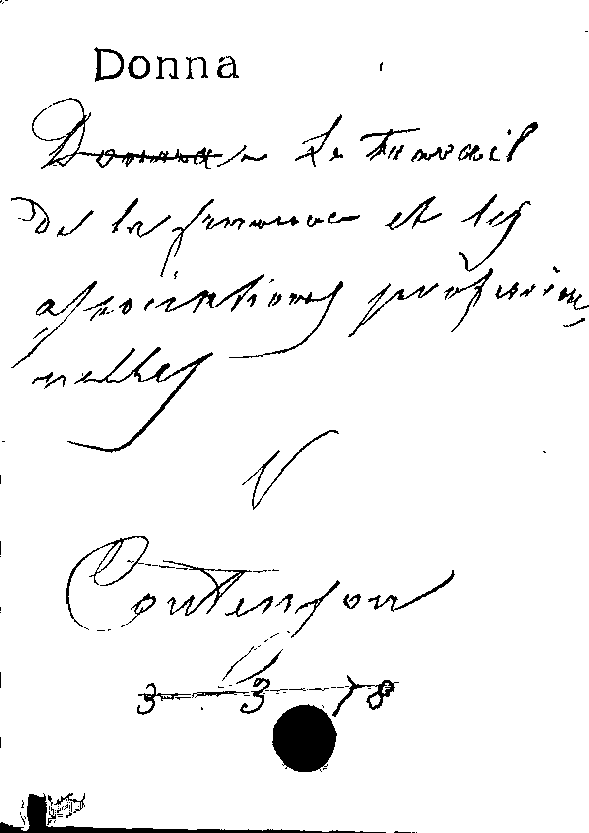 Donna
Donna — Le Travail
de la femme et les
associations profession-
nelles —
V
Contenson
3 — 3 — 78